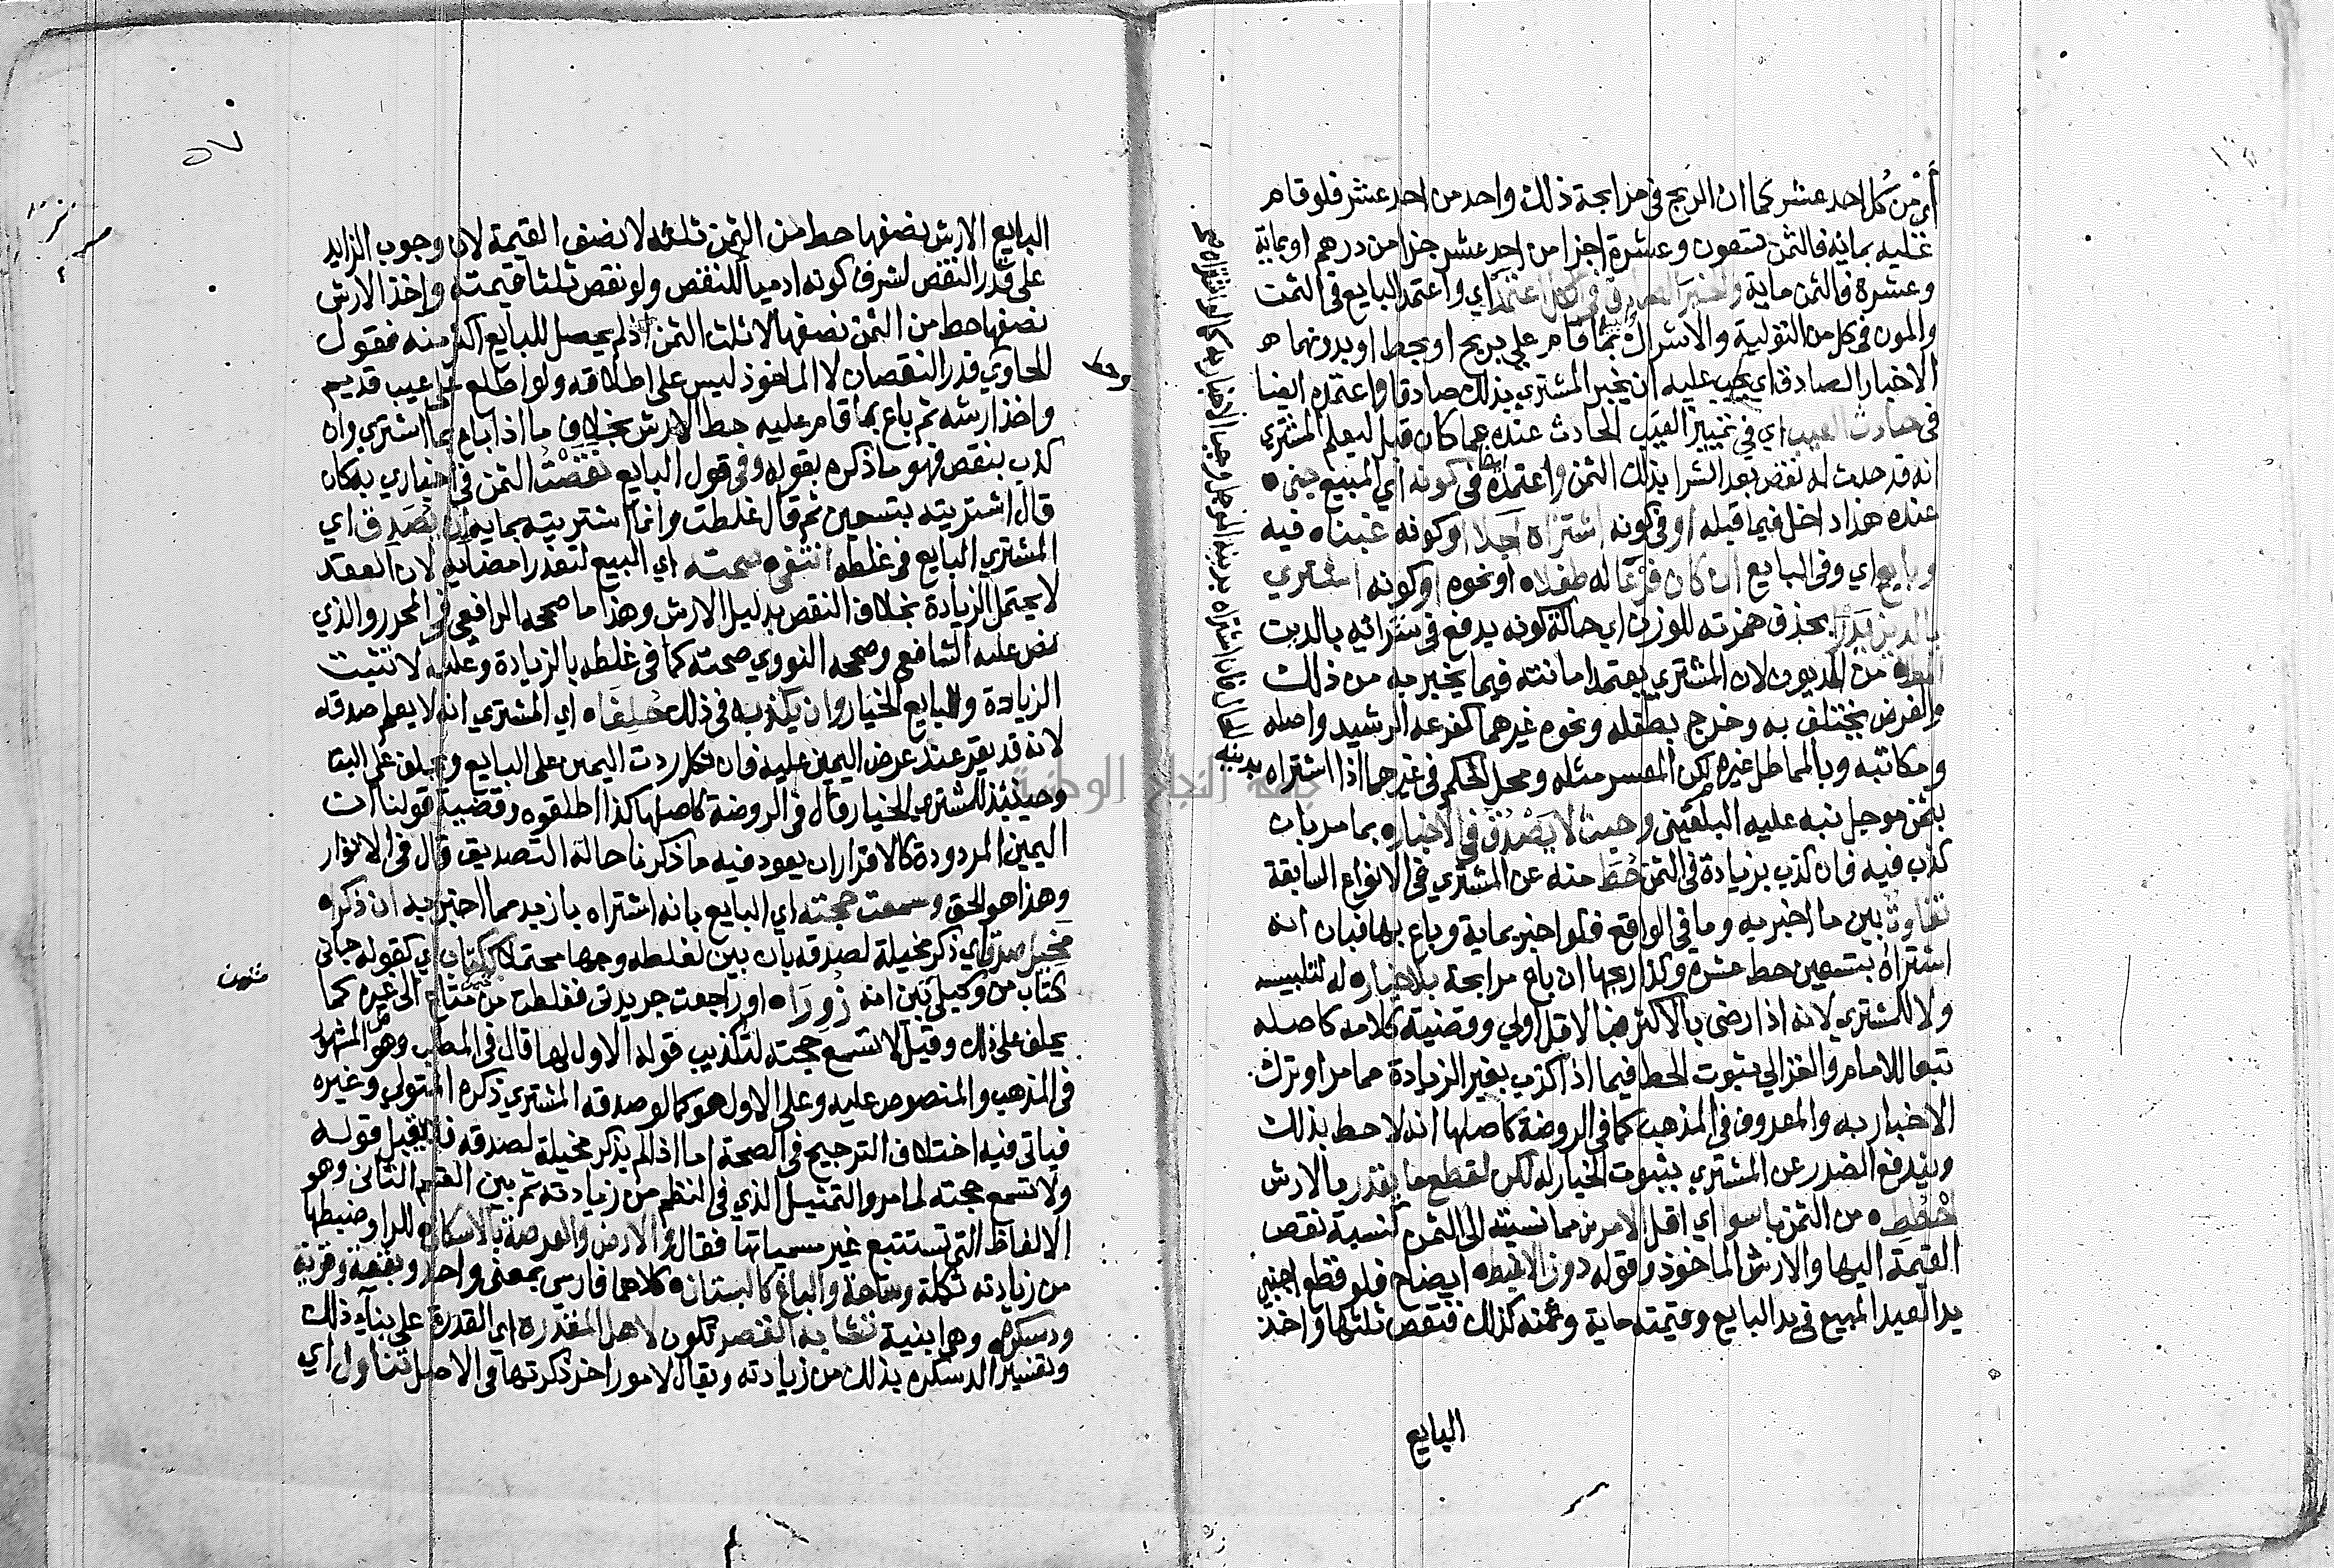 أي من كل احد عشر كما ان الربح في مرابحة ذلك واحد من احد عشر فلو قام
عليه بمائة فالثمن تسعون وعشرة اجزا من احد عشر جزا من درهم او بماية
وعشرة فالثمن ماية والخبر الصادق في كل اعتمد اي واعتمد البايع في الثمن
والمون في كل من التولية والاشراك بما قام علي بربح او بحط او بدونهما
الاخبار الصادق اي يجب عليه ان يخبر المشتري بذلك صادقا واعتمده ايضا
في حادث العيب اي في تمييز العيب الحادث عنده عما كان قبل ليعلم المشتري
انه قد حدث له نقص بعد الشرا بذلك الثمن واعتمده ايضا في كونه اي المبيع جني
عنده هذا داخل فيما قبله او في كونه اشتراه اجلا او كونه غبناه فيه
وبايع اي وفي البايع ان كان فرعا له طفلا او نحوه او كونه اشتري
بالدين بحذف همزته للوزن اي حالة كونه يدفع في شرائه بالدين
من المديون لان المشتري يعتمد امانته فيما يخبر به من ذلك
والغرض يختلف به وخرج بطفله ونحوه غيرهما كفرعه الرشيد واصله
ومكاتبه وبالمماطل غيره لكن المعسر مثله ومحل الحكم في غيرهما اذا اشتراه
بثمن موجل نبه عليه البلقيني وحيث لا يصدق في الاخبار بما مر بان
كذب فيه فان كذب بزيادة في الثمن حط منه عن المشتري في الانواع السابقة
تفاوت بين ما اخبر به وما في الواقع فلو اخبر بماية وباع بها فبان انه
اشتراه بتسعين حط عشرة وكذا ربحها ان باع مرابحة بلا خيار له لتلبيسه
ولا للمشتري لانه اذا رضي بالاكثر فبالاقل اولي وقضية كلامه كاصله
تبعا للامام والغزالي ثبوت الحط فيما اذا كذب بغير الزيادة مما مر او ترك
الاخبار به والمعروف في المذهب كما في الروضة كاصلها انه لا حط بذلك
ويندفع الضرر عن المشتري بثبوت الخيار له لكن لقطع ما يقدر بالارش
احطط من الثمن باسوا اي اقل الامرين مما نسبته الى الثمن كنسبة نقص
القيمة اليها والارش الماخوذ وقوله دون الغبطة ايضاح فلو قطع اجنبي
يد العبد المبيع في يد البايع وقيمته ماية وثمنه كذلك فنقص ثلثها واخذ
البايع
٥٧
البايع الارش نصفها حط من الثمن ثلثه لا نصف القيمة لان وجوب الزايد
على قدر النقص لشرف كونه ادميا لا للنقص ولو نقص ثلثا قيمته واخذ الارش
نصفها حط من الثمن نصفها لا ثلث الثمن اذ لم يحصل للبايع اكثر منه فقول
الحاوي قدر النقصان لا الماخوذ ليس على اطلاقه ولو اطلع على عيب قديم
واخذ ارشه ثم باع بما قام عليه حط الارش بخلاف ما اذا باع بما اشتري وان
كذب بنقص فهو ما ذكره بقوله وفي قول البايع نقصت الثمن في اخباري به كان
قال اشتريته بتسعين ثم قال غلطت وانما اشتريته بماية ان يصدق اي
المشتري البايع في غلطه انتفى صحته اي البيع لتعذر امضايه لان العقد
لا يحتمل الزيادة بخلاف النقص بدليل الارش وهذا ما صححه الرافعي في المحرر والذي
نص عليه الشافعي وصححه النووي صحته كما في غلطه بالزيادة وعليه لا تثبت
الزيادة وللبايع الخيار وان يكذبه في ذلك حلفاه اي المشتري انه لا يعلم صدقه
لانه قد يقر عند عرض اليمين عليه فان نكل ردت اليمين على البايع ويحلف على البتا
وحينئذ للمشتري الخيار قال في الروضة كاصلها كذا اطلقوه وقضية قولنا ان
اليمين المردودة كالاقرار ان يعود فيه ما ذكرنا حالة التصديق قال في الانوار
وهذا هو الحق وسمعت حجته اي البايع بانه اشتراه بازيد مما اخبر به ان ذكراه
مخيل صدق اي ذكر مخيلة لصدقه بان بين لغلطه وجها محتملا ككتاب اي كقوله جاني
كتاب من وكيلي تبين انه زوراه او راجعت جريدتي فغلطت من متاع الى غيره كما
يحلف على ذلك وقيل لا تسمع حجته لتكذيب قوله الاول لها قال في المطلب وهو المشهور
في المذهب والمنصوص عليه وعلى الاول هو كما لو صدقه المشتري ذكره المتولي وغيره
فياتي فيه اختلاف الترجيح في الصحة اما اذا لم يذكر مخيلة لصدقه فلا يقبل قوله
ولا تسمع حجته لما مر والتمثيل الذي في النظم من زيادته ثم بين القسم الثاني وهو
الالفاظ التي تستتبع غير مسمياتها فقال والارض والعرصة بالاسكان للرا وضبطها
من زيادته تكملة وساحة والباغ كالبستان كلاهما فارسي بمعنى واحد وبقعة وقرية
ودسكره وهي ابنية تشابه القصر تكون لاهل المقدره اي القدرة على بناء ذلك
وتفسير الدسكره بذلك من زيادته وتقال لامور اخر ذكرتها في الاصل تناول اي
جامعة النجاح الوطنية